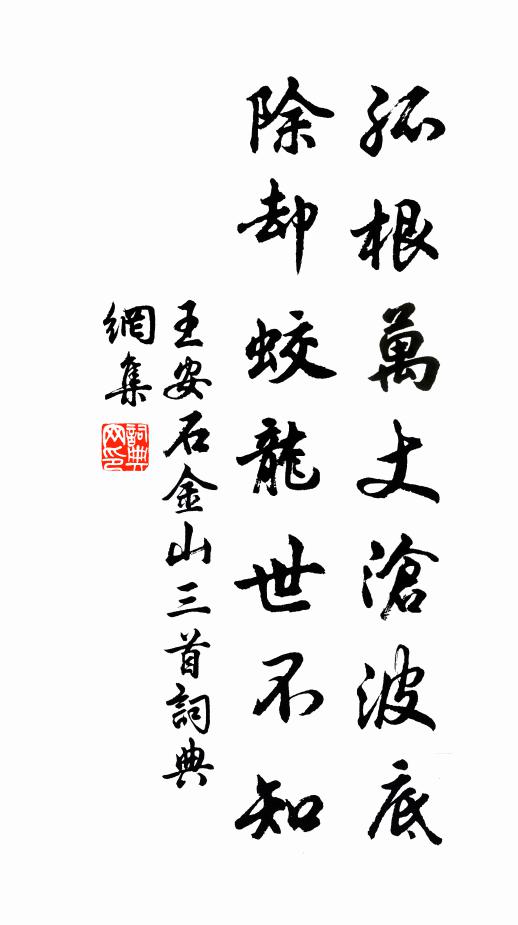 孤根萬丈滄波底
除却蛟龍世不知
王安石金山三首詞典
網集
詞典網印